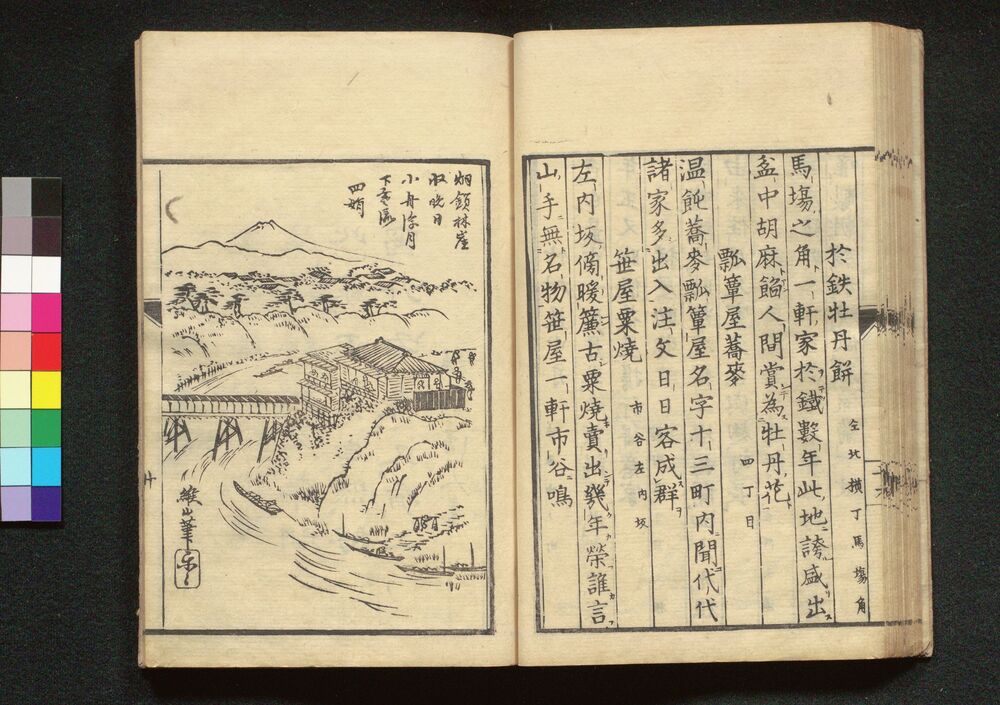 於鉄牡丹餅 全北横丁馬場角
馬塲之角一軒家於鐡數年此地誇盛出
盆中胡麻餡人間賞為牡丹花
瓢簞屋蕎麥 四丁目
温飩蕎麥瓢簞屋名字十三町内聞代代
諸家多出入注文日日客成群
笹屋粟焼 市谷左内坂
左内坂傍暖簾古粟焼賣出幾年榮誰言
山手無名物笹屋一軒市谷鳴
烟鎖林崖
収晩日
小舟
月
下
筆